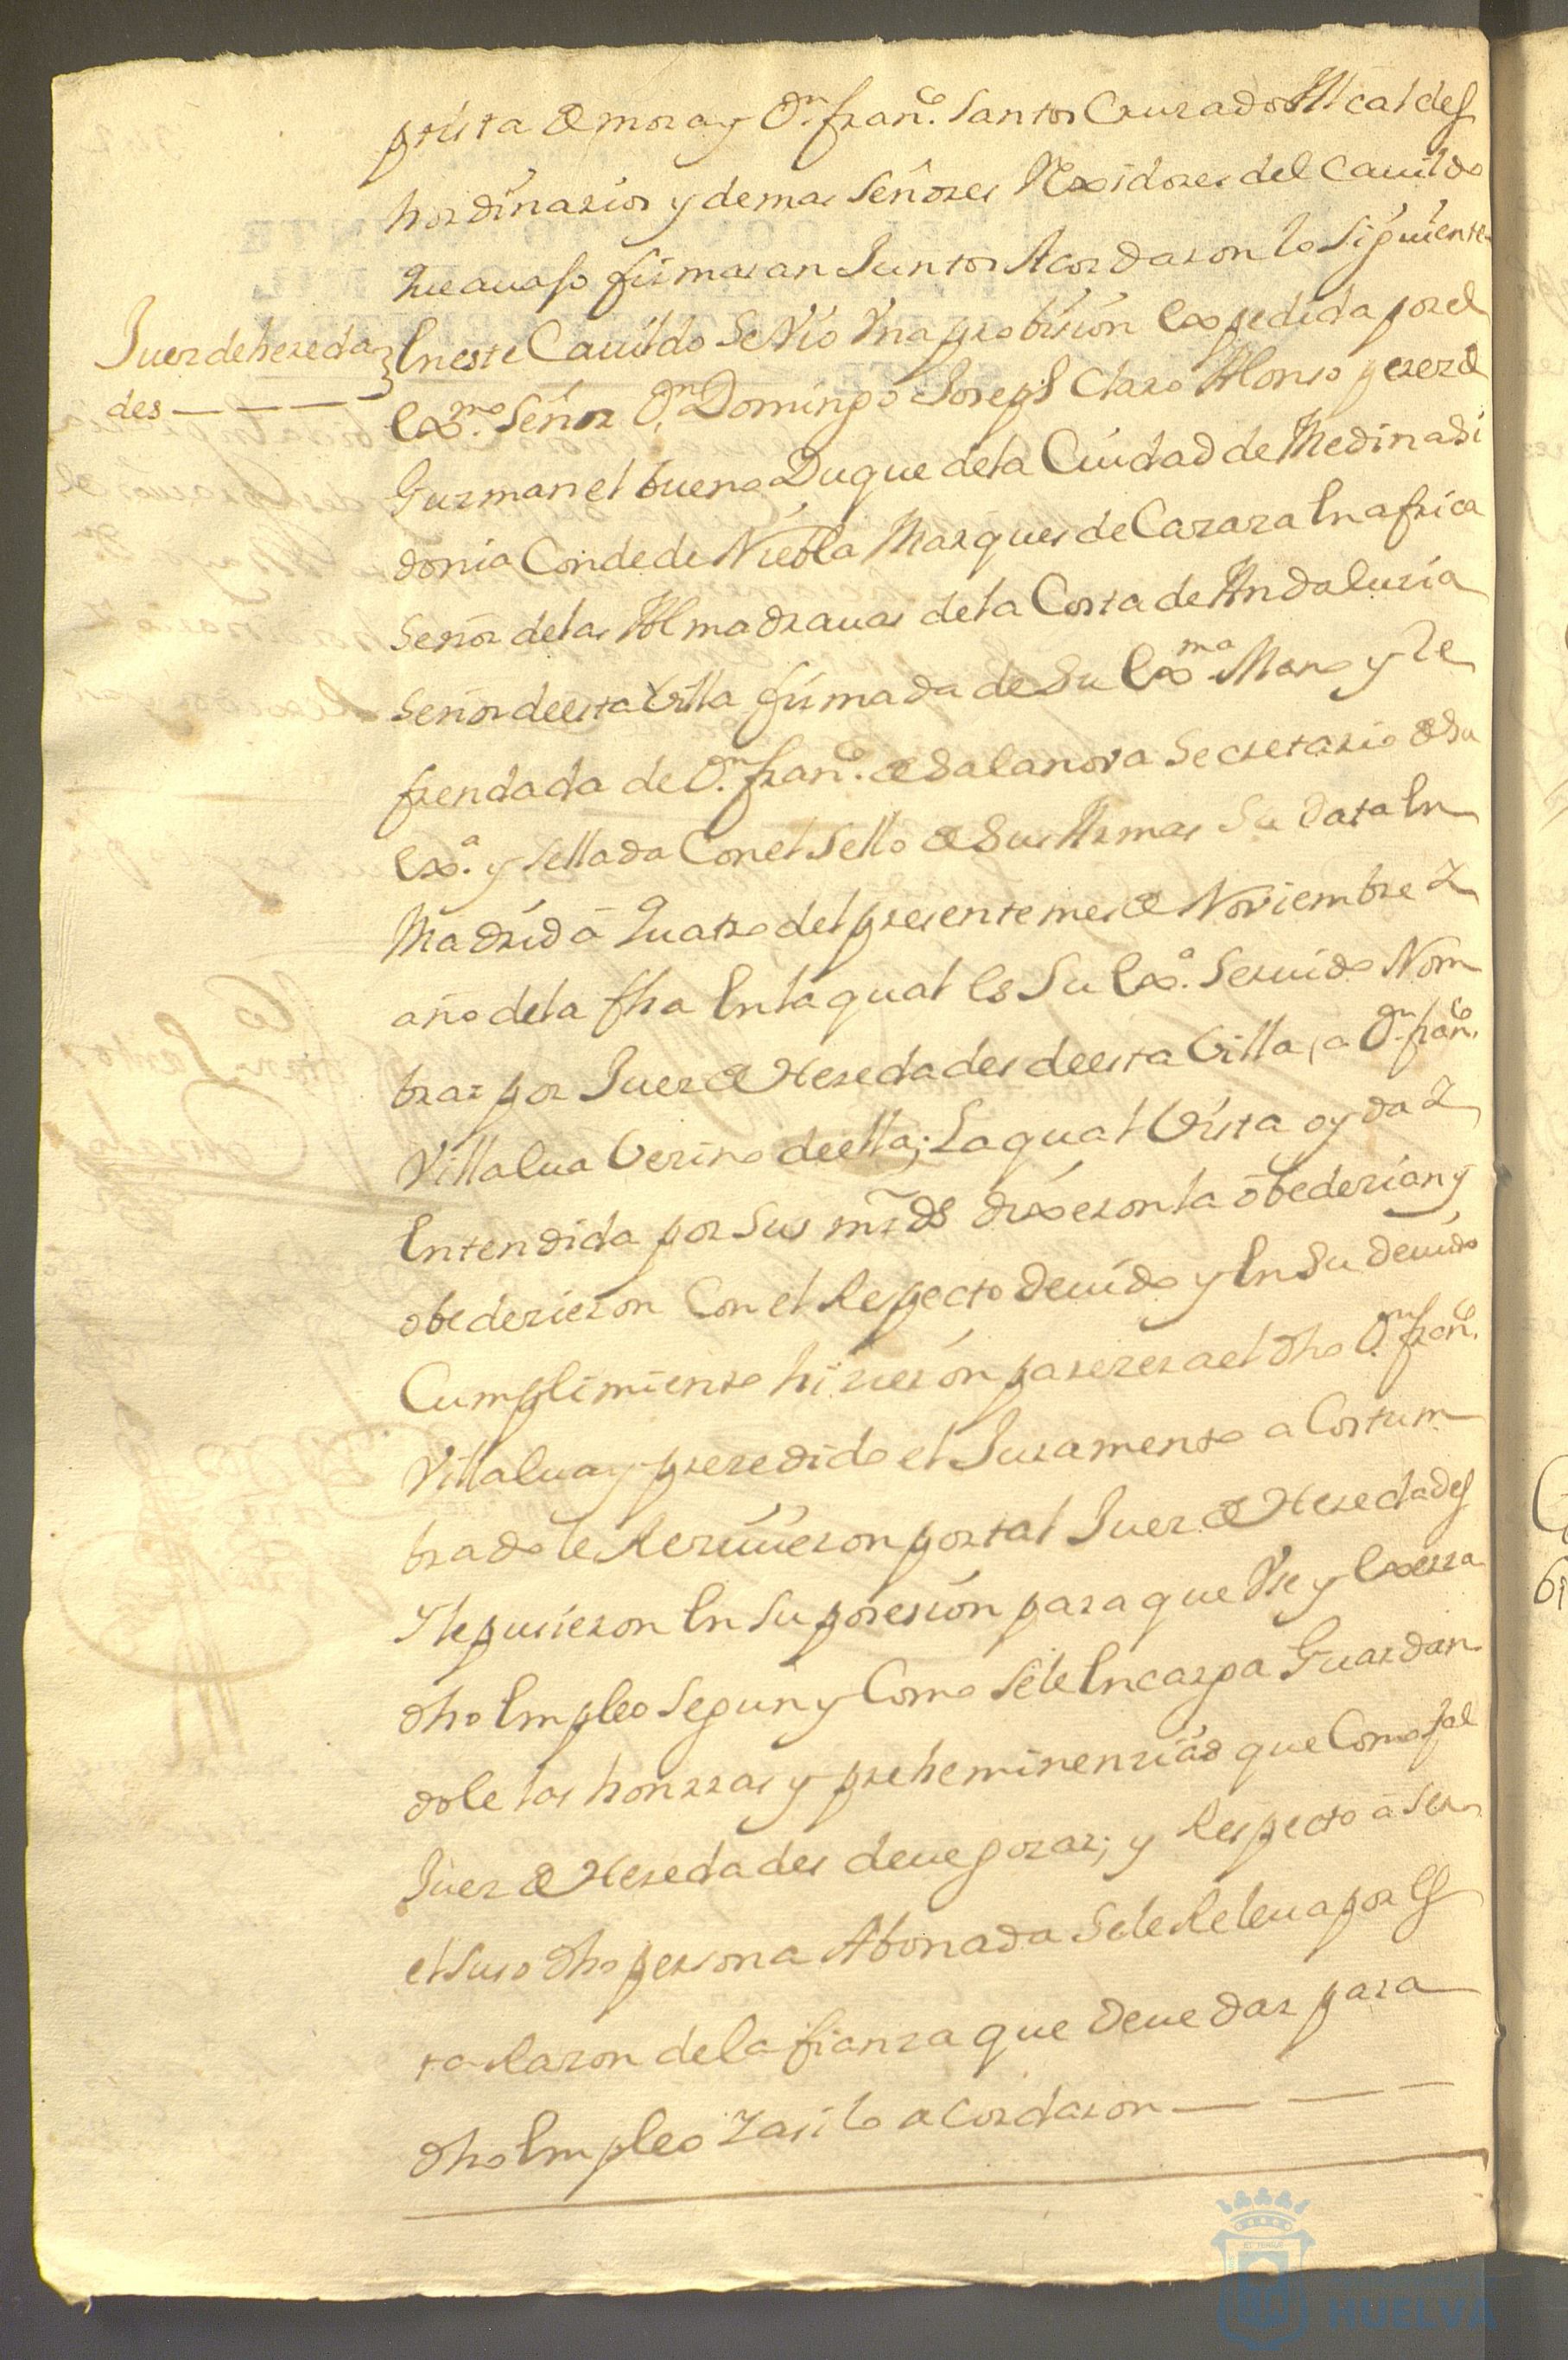 ptista de mora y Dn. franco. Santos Cruzado Alcaldes
hordinarios y demas Señores Rexidores del Cauildo
que auajo firmaran Juntos Acordaron lo Siguiente
Juez de hereda
des
En este Cauildo Se Vio Vna probision Expedida por el
Exmo. Señor Dn. Domingo Joseph Claro Alonso perez de
Guzman el bueno Duque de la Ciudad de Medinasi
donia Conde de Niebla Marques de Cazaza En africa
Señor de las Almadrauas de la Costa de Andaluzia
Señor de esta Villa firmada de Su Exma. Mano y Re
frendada de Dn. franco. de Salanova Secretario de Su
Exa. y Sellada Con el Sello de Sus Armas Su data En
Madrid a Quatro del presente mes de Noviembre y
año de la fha En la qual Es Su Exa. Seruido Nom
brar por Juez de Heredades de esta Villa, a Dn. franco.
Villalua Vezino de ella; La qual Vista oyda y
Entendida por Sus mrds dixeron la obedezian y
obedezieron Con el Respecto deuido y En Su deuido
Cumplimiento hizieron parezer a el dho Dn. franco.
Villalua y prezedido el Juramento a Costum
brado le Reziuieron por tal Juez de Heredades
Y le pusieron En Su posesion para que Vse y Exerza
dho Empleo Segun y Como Se le Encarga Guardan
dole las honrras y preheminenzias que Como tal
Juez de Heredades deue gozar; y Respecto a Ser
el Suso dho persona Abonada Se le Releua por Es
ta Razon de la fianza que Deue dar para
dho Empleo Y asi lo acordaron
HUELVA